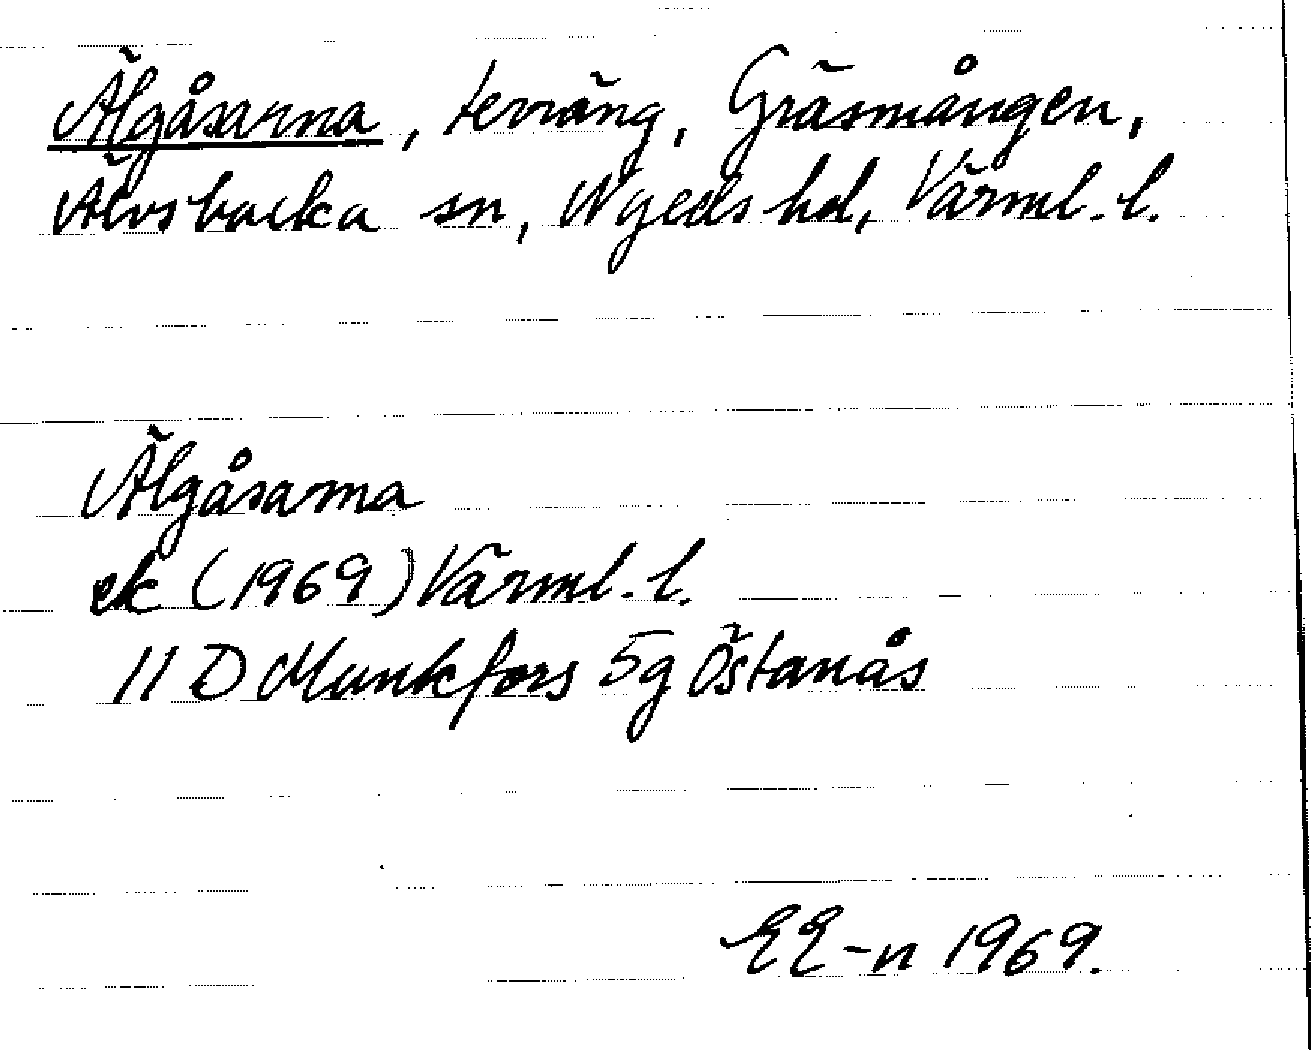 Älgåsarna, terräng, Gräsmången,
Älvsbacka sn, Nyeds hd, Värml. l.
Älgåsarna
ek (1969) Värml. l.
11 D Munkfors 5g Östanås
EE-n 1969.